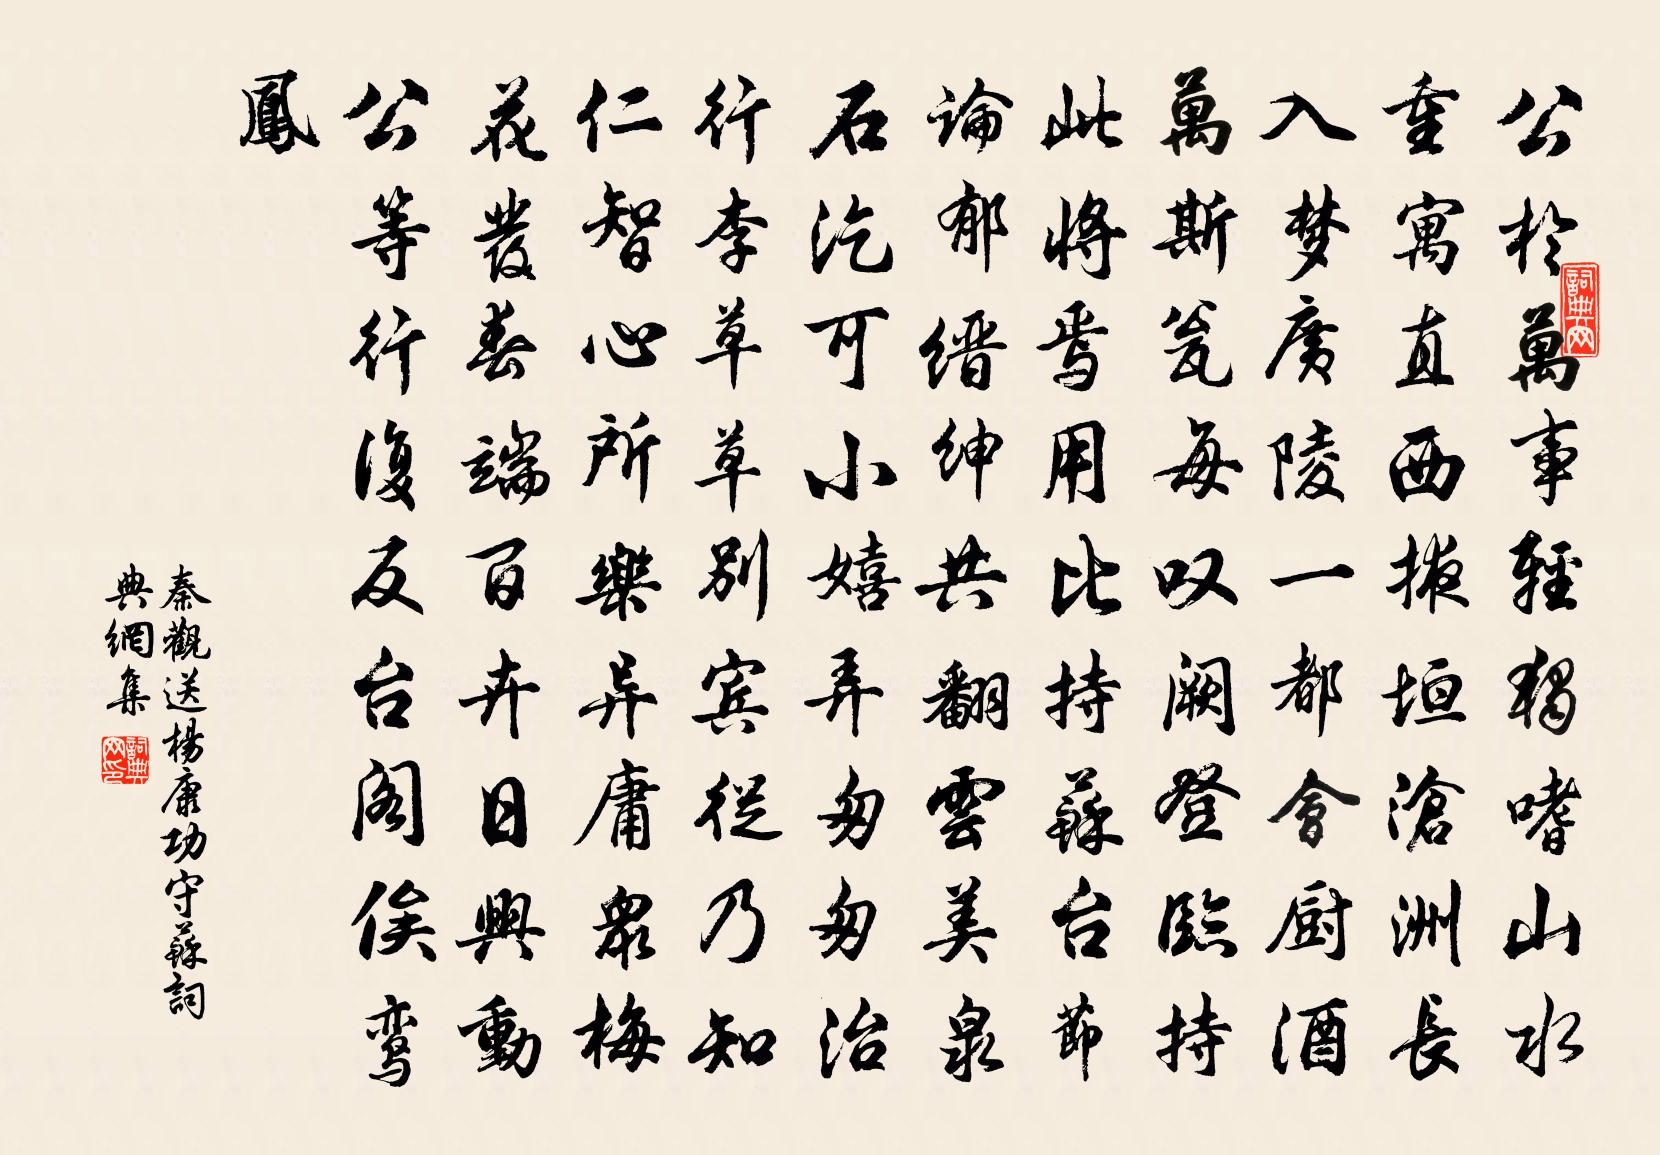 公於萬事輕獨嗜山水
重寓直西掖垣滄洲長
入梦廣陵一都會厨酒
萬斯瓮每叹阙登臨持
此將焉用比持蘇台節
論郁缙绅共翻雲美泉
石汔可小嬉弄匆匆治
行李草草别宾從乃知
仁智心所樂异庸衆梅
花發春端百卉日興動
公等行復反台阁俟鸾
鳳
秦觀送楊康功守蘇詞
典網集
詞典网
詞典网印